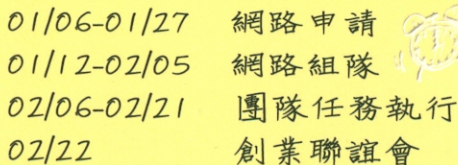 01/06-01/27 網路申請
01/12-02/05 網路組隊
02/06-02/21 團隊任務執行
02/22 創業聯誼會